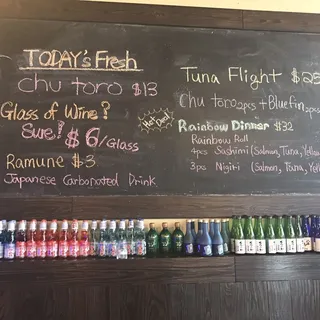 TODAY's Fresh
Chu toro $13
Glass of Wine?
Sure! $6/Glass
Ramune $3
Japanese Carbonated Drink
Hot Deal
Tuna Flight
Chu toro 2pcs + Bluefin 3pcs
Rainbow Dinner $32
Rainbow Roll
4pcs Sashimi (Salmon, Tuna, Yellow
3pcs Nigiri (Salmon, Tuna, Yello